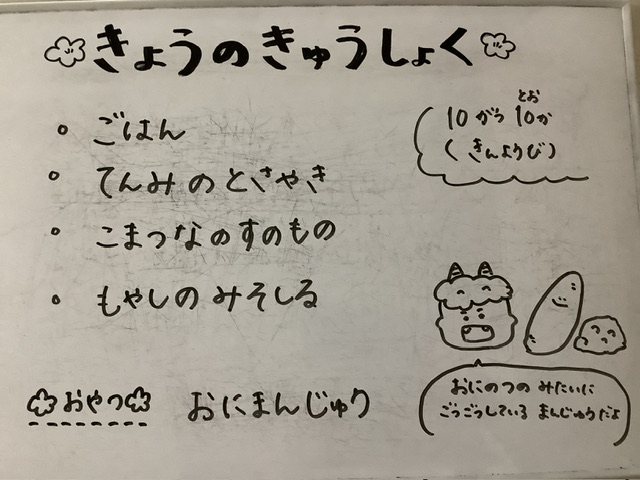 きょうのきゅうしょく
とお
10がつ 10か
(きんようび)
ごはん
てんみのとさやき
こまつなのすのもの
もやしのみそしる
おやつ
おにまんじゅう
おにのつの みたいに
ごつごつしている まんじゅうだよ